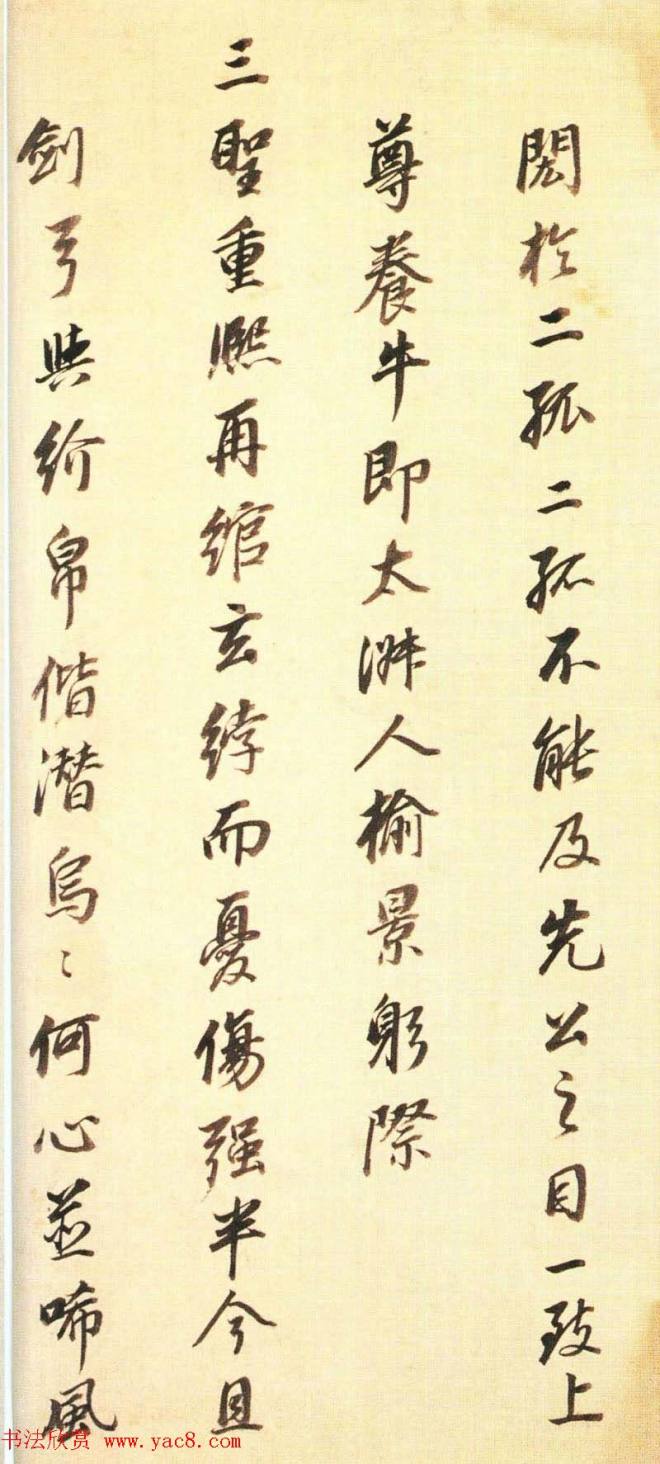 閎於二孤二孤不能及先公之目一致上
尊養牛即太淋人榆景躬際
三聖重熙再綰玄綍而憂傷强半今且
劍弓與紒帛偕潛烏〻何心並唏風
书法欣赏 www.yac8.com